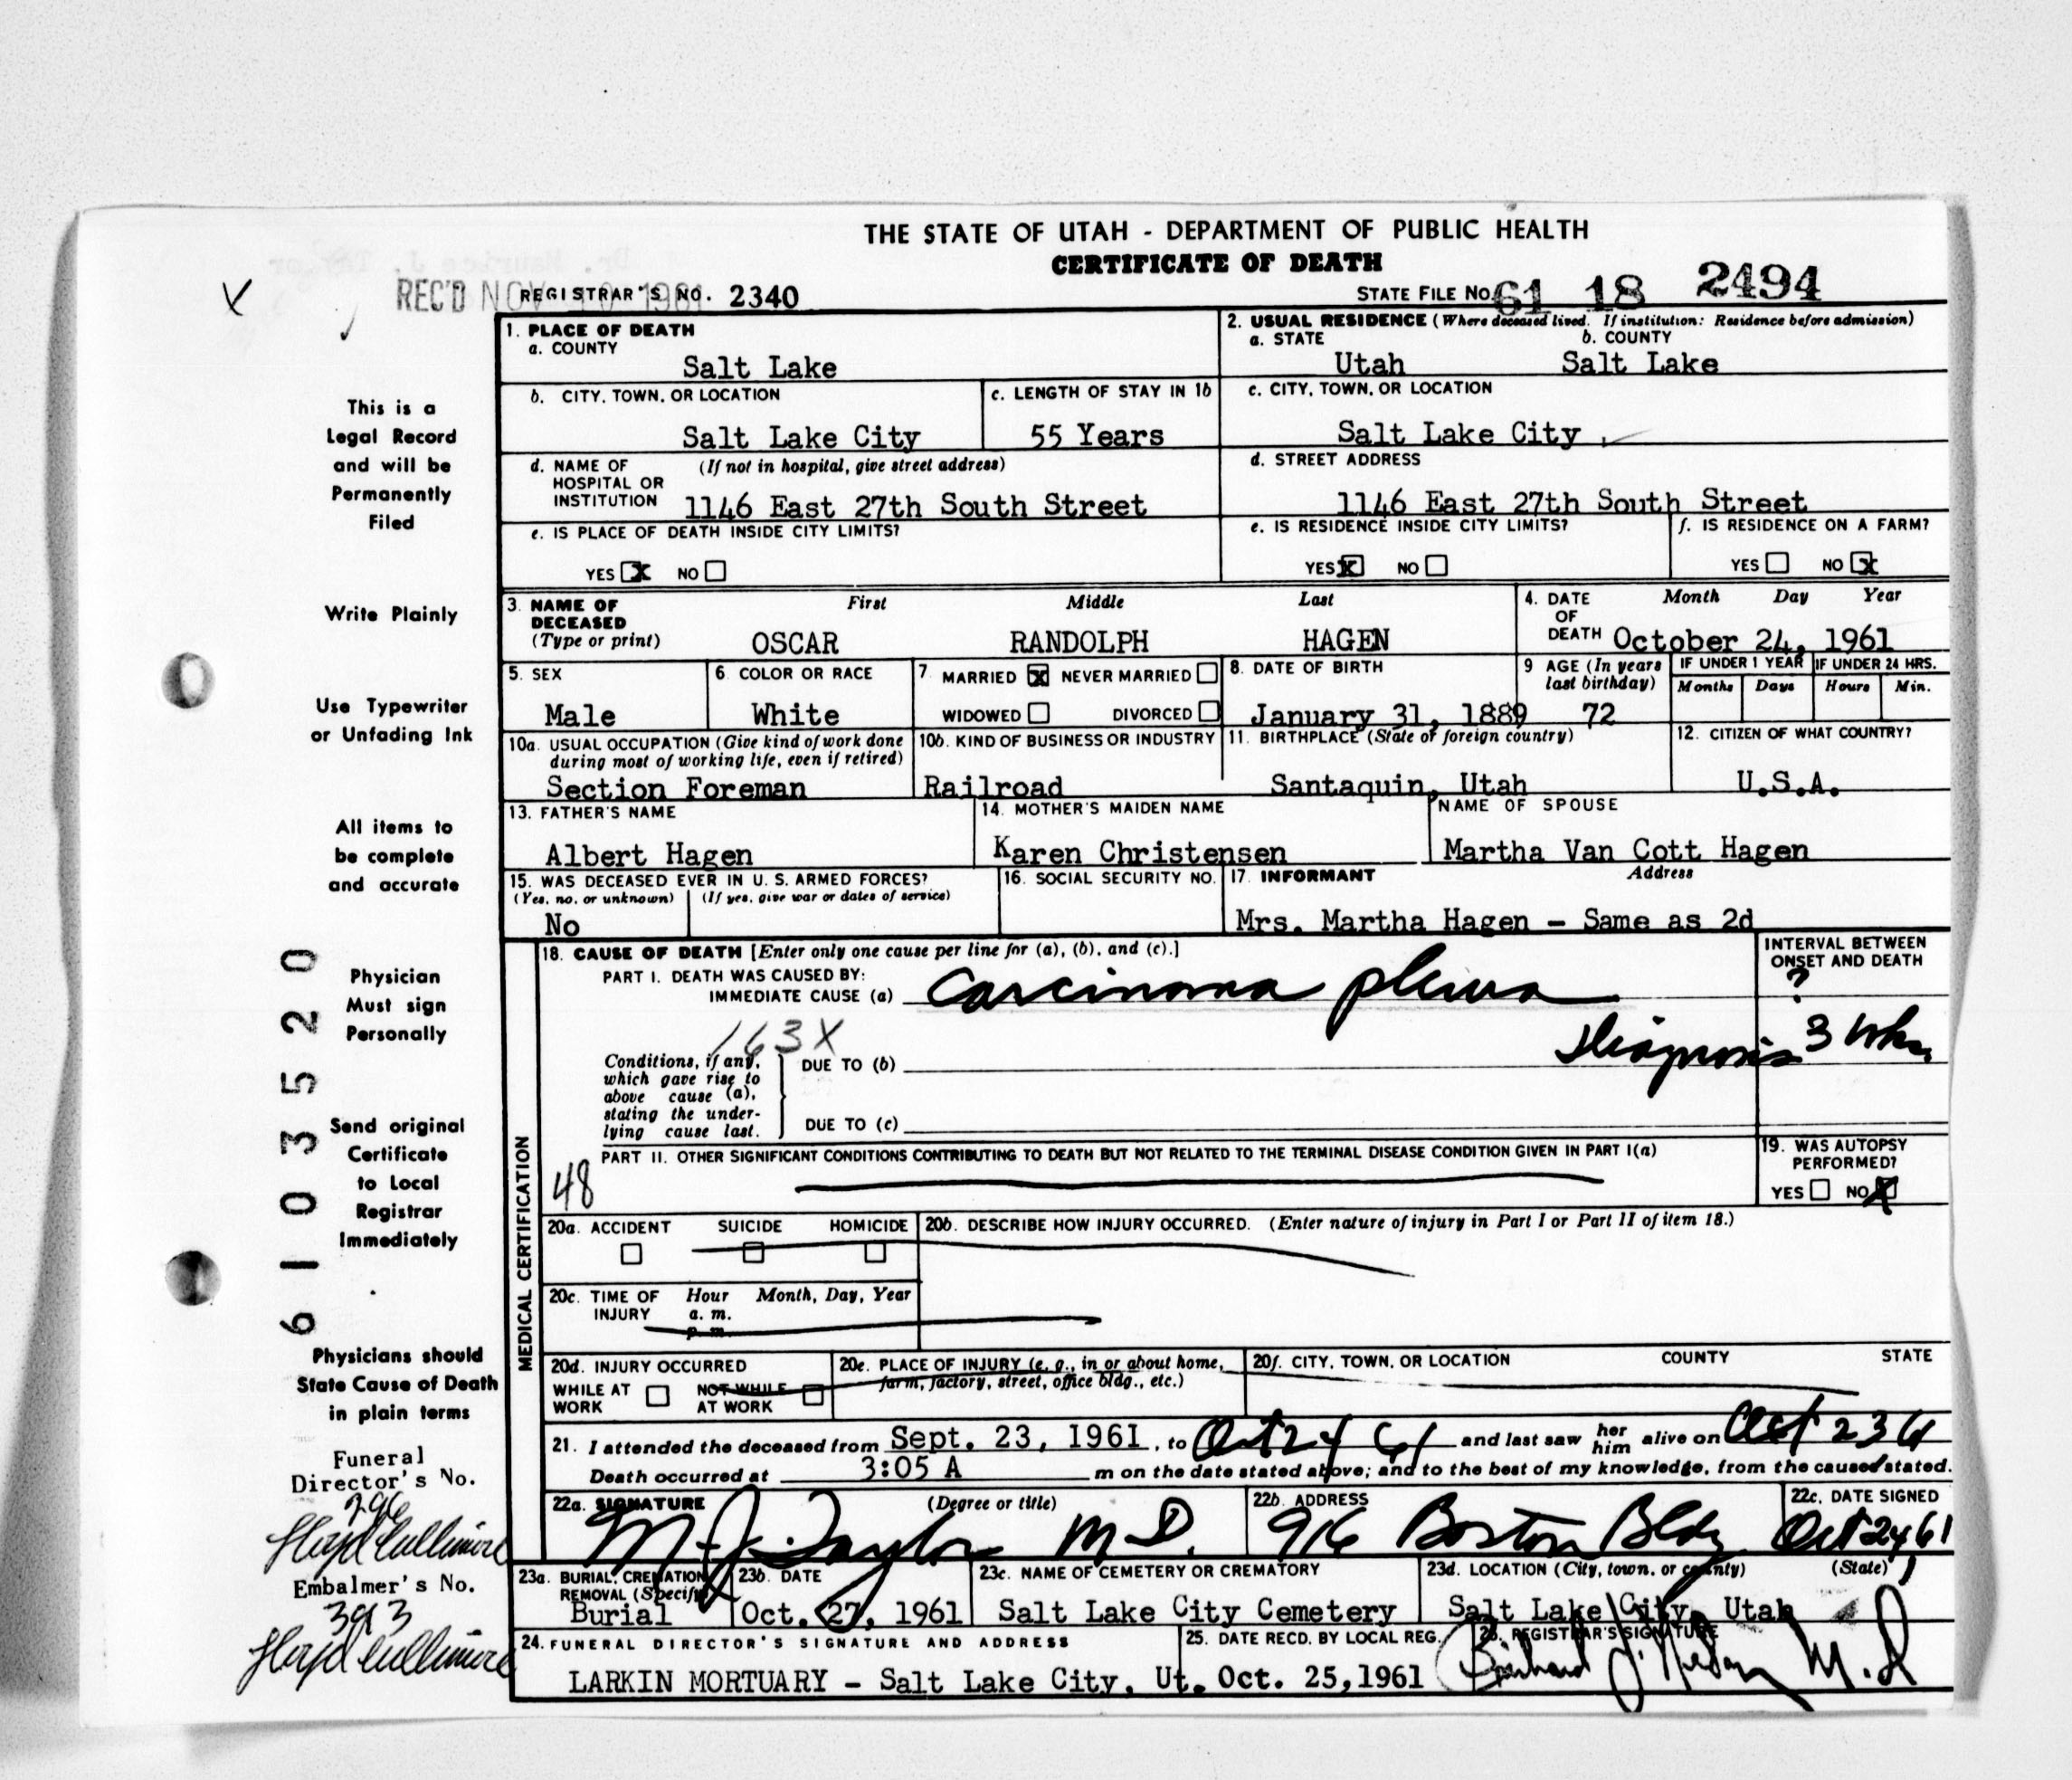 THE STATE OF UTAH - DEPARTMENT OF PUBLIC HEALTH
CERTIFICATE OF DEATH
REC'D NOV 10 1961 REGISTRAR'S NO. 2340
STATE FILE NO. 61 18 2494
1. PLACE OF DEATH
a. COUNTY
Salt Lake
2. USUAL RESIDENCE (Where deceased lived. If institution: Residence before admission)
a. STATE b. COUNTY
Utah Salt Lake
b. CITY, TOWN, OR LOCATION
Salt Lake City
c. LENGTH OF STAY IN 1b
55 Years
c. CITY, TOWN, OR LOCATION
Salt Lake City
d. NAME OF (If not in hospital, give street address)
HOSPITAL OR
INSTITUTION 1146 East 27th South Street
d. STREET ADDRESS
1146 East 27th South Street
e. IS PLACE OF DEATH INSIDE CITY LIMITS?
YES X NO
e. IS RESIDENCE INSIDE CITY LIMITS?
YES X NO
f. IS RESIDENCE ON A FARM?
YES NO X
3. NAME OF DECEASED (Type or print)
First Middle Last
OSCAR RANDOLPH HAGEN
4. DATE OF DEATH Month Day Year
October 24, 1961
5. SEX
Male
6. COLOR OR RACE
White
7. MARRIED X NEVER MARRIED
WIDOWED DIVORCED
8. DATE OF BIRTH
January 31, 1889
9 AGE (In years last birthday)
72
IF UNDER 1 YEAR IF UNDER 24 HRS.
Months Days Hours Min.
10a. USUAL OCCUPATION (Give kind of work done
during most of working life, even if retired)
Section Foreman
10b. KIND OF BUSINESS OR INDUSTRY
Railroad
11. BIRTHPLACE (State or foreign country)
Santaquin, Utah
12. CITIZEN OF WHAT COUNTRY?
U.S.A.
13. FATHER'S NAME
Albert Hagen
14. MOTHER'S MAIDEN NAME
Karen Christensen
NAME OF SPOUSE
Martha Van Cott Hagen
15. WAS DECEASED EVER IN U. S. ARMED FORCES?
(Yes, no, or unknown) (If yes, give war or dates of service)
No
16. SOCIAL SECURITY NO.
17. INFORMANT Address
Mrs. Martha Hagen - Same as 2d
MEDICAL CERTIFICATION
18. CAUSE OF DEATH [Enter only one cause per line for (a), (b), and (c).]
PART I. DEATH WAS CAUSED BY:
IMMEDIATE CAUSE (a) Carcinoma pleura
INTERVAL BETWEEN
ONSET AND DEATH
?
163X
Diagnosis 3 Wks.
Conditions, if any,
which gave rise to
above cause (a),
stating the under-
lying cause last.
DUE TO (b)
DUE TO (c)
PART II. OTHER SIGNIFICANT CONDITIONS CONTRIBUTING TO DEATH BUT NOT RELATED TO THE TERMINAL DISEASE CONDITION GIVEN IN PART I(a)
48
19. WAS AUTOPSY
PERFORMED?
YES NO X
20a. ACCIDENT SUICIDE HOMICIDE
20b. DESCRIBE HOW INJURY OCCURRED. (Enter nature of injury in Part I or Part II of item 18.)
20c. TIME OF INJURY Hour Month, Day, Year
a. m.
p. m.
20d. INJURY OCCURRED
WHILE AT WORK NOT WHILE AT WORK
20e. PLACE OF INJURY (e. g., in or about home,
farm, factory, street, office bldg., etc.)
20f. CITY, TOWN, OR LOCATION COUNTY STATE
21. I attended the deceased from Sept. 23, 1961, to Oct 24 61 and last saw her him alive on Oct 23 61
Death occurred at 3:05 A m on the date stated above; and to the best of my knowledge, from the causes stated.
22a. SIGNATURE (Degree or title)
M. J. Taylor M.D.
22b. ADDRESS
916 Boston Bldg
22c. DATE SIGNED
Oct 24 61
23a. BURIAL, CREMATION, REMOVAL (Specify)
Burial
23b. DATE
Oct. 27, 1961
23c. NAME OF CEMETERY OR CREMATORY
Salt Lake City Cemetery
23d. LOCATION (City, town, or county) (State)
Salt Lake City, Utah
24. FUNERAL DIRECTOR'S SIGNATURE AND ADDRESS
LARKIN MORTUARY - Salt Lake City, Ut.
25. DATE RECD. BY LOCAL REG.
Oct. 25,1961
26. REGISTRAR'S SIGNATURE
M.D.
This is a
Legal Record
and will be
Permanently
Filed
Write Plainly
Use Typewriter
or Unfading Ink
All items to
be complete
and accurate
Physician
Must sign
Personally
Send original
Certificate
to Local
Registrar
Immediately
Physicians should
State Cause of Death
in plain terms
Funeral
Director's No.
296
Floyd Cullimore
Embalmer's No.
393
Floyd Cullimore
6103520